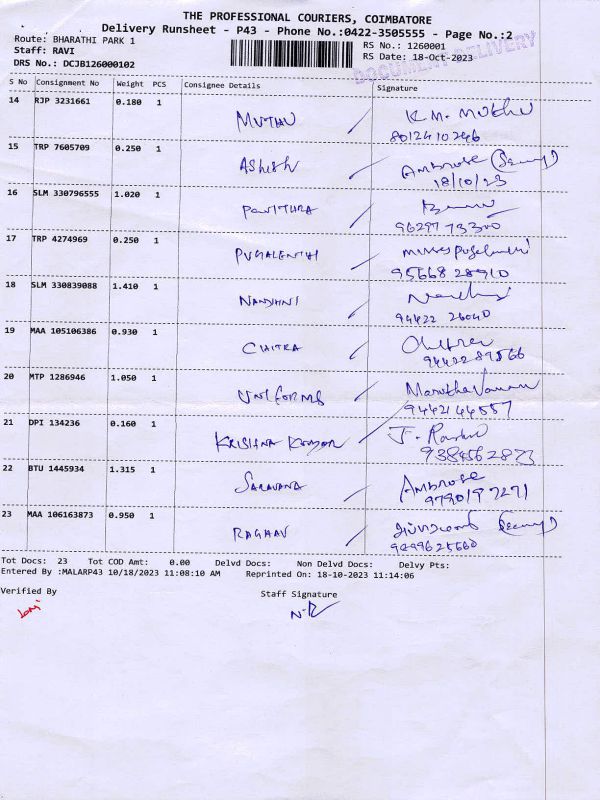 THE PROFESSIONAL COURIERS, COIMBATORE
Delivery Runsheet - P43 - Phone No.:0422-3505555 - Page No.:2
Route: BHARATHI PARK 1
RS No.: 1260001
Staff: RAVI
RS Date: 18-Oct-2023
DRS No.: DCJB126000102
DOCUMENT DELIVERY
S No Consignment No Weight PCS Consignee Details Signature
14 RJP 3231661 0.180 1 MUTHU K. M. Muthu
8012410246
15 TRP 7605709 0.250 1 AShish Ambrose
18/10/23
16 SLM 330796555 1.020 1 PAVITHRA
9629773300
17 TRP 4274969 0.250 1 PUGALENTHI
9566828910
18 SLM 330839088 1.410 1 NANDHINI
94422 26040
19 MAA 105106386 0.930 1 CHITRA
9442289566
20 MTP 1286946 1.050 1 UNIFORMS
9442144557
21 DPI 134236 0.160 1 KRISHNA KUMAR
22 BTU 1445934 1.315 1 SARAVANA Ambrose
23 MAA 106163873 0.950 1 RAGHAV
Tot Docs: 23 Tot COD Amt: 0.00 Delvd Docs: Non Delvd Docs: Delvy Pts:
Entered By :MALARP43 10/18/2023 11:08:10 AM Reprinted On: 18-10-2023 11:14:06
Verified By Staff Signature